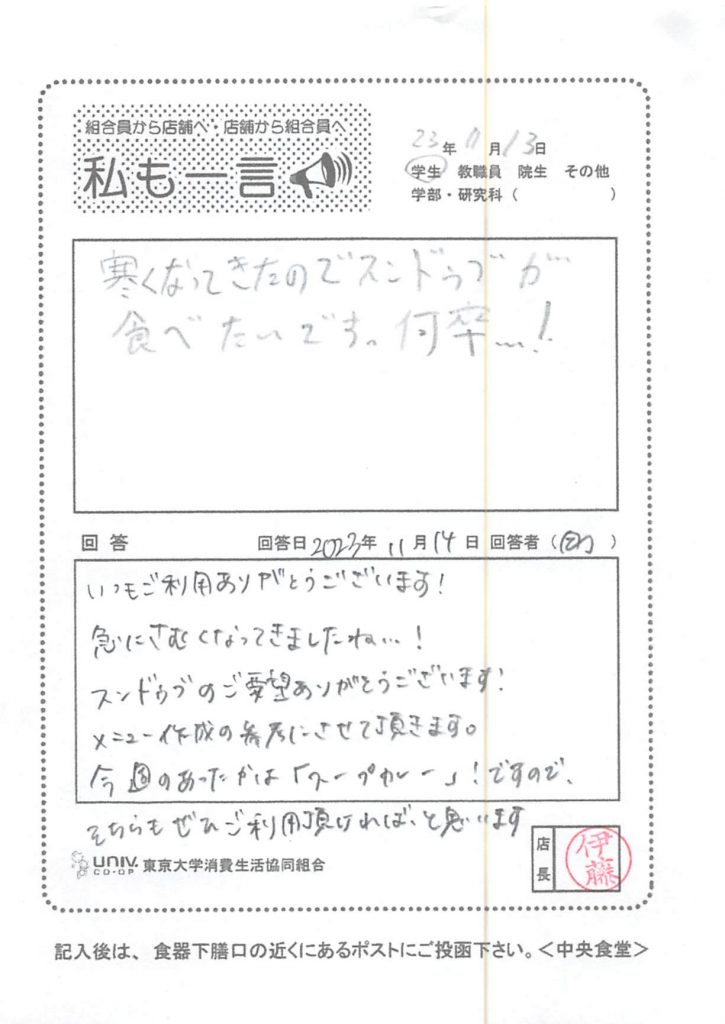 組合員から店舗へ・店舗から組合員へ
私も一言
23年11月13日
学生 教職員 院生 その他
学部・研究科( )
寒くなってきたのでスンドゥブが
食べたいです。何卒…!
回答 回答日2023年11月14日 回答者( )
いつもご利用ありがとうございます!
急にさむくなってきましたね…!
スンドゥブのご要望ありがとうございます!
メニュー作成の参考にさせて頂きます。
今週のあったかは「スープカレー」!ですので、
そちらもぜひご利用頂ければ、と思います
店長
伊藤
UNIV. CO-OP 東京大学消費生活協同組合
記入後は、食器下膳口の近くにあるポストにご投函下さい。<中央食堂>